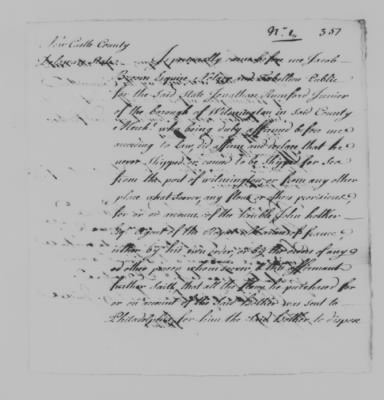 No. 1. 357
New Castle County
Delaware State Personally came before me Jacob
Broom Esquire Notary and Tabellion Public
for the Said State Jonathan Rumford Junior
of the borough of Wilmington in Said County
Merch. who being duly affirmed before me
according to law, did affirm and declare that he
never Shipped or caused to be Shipped for Sea
from the port of Wilmington or from any other
place whatsoever, any flour or other provisions
for or on account of the Honble John Holker
Esqr. Agent of the Royal Marine of france
either by his own order, or by the order of any
other person whomsoever & this affirmant
further Saith, that all the flour he purchased for
or on account of the Said Holker was sent to
Philadelphia for him the Said Holker, to dispose